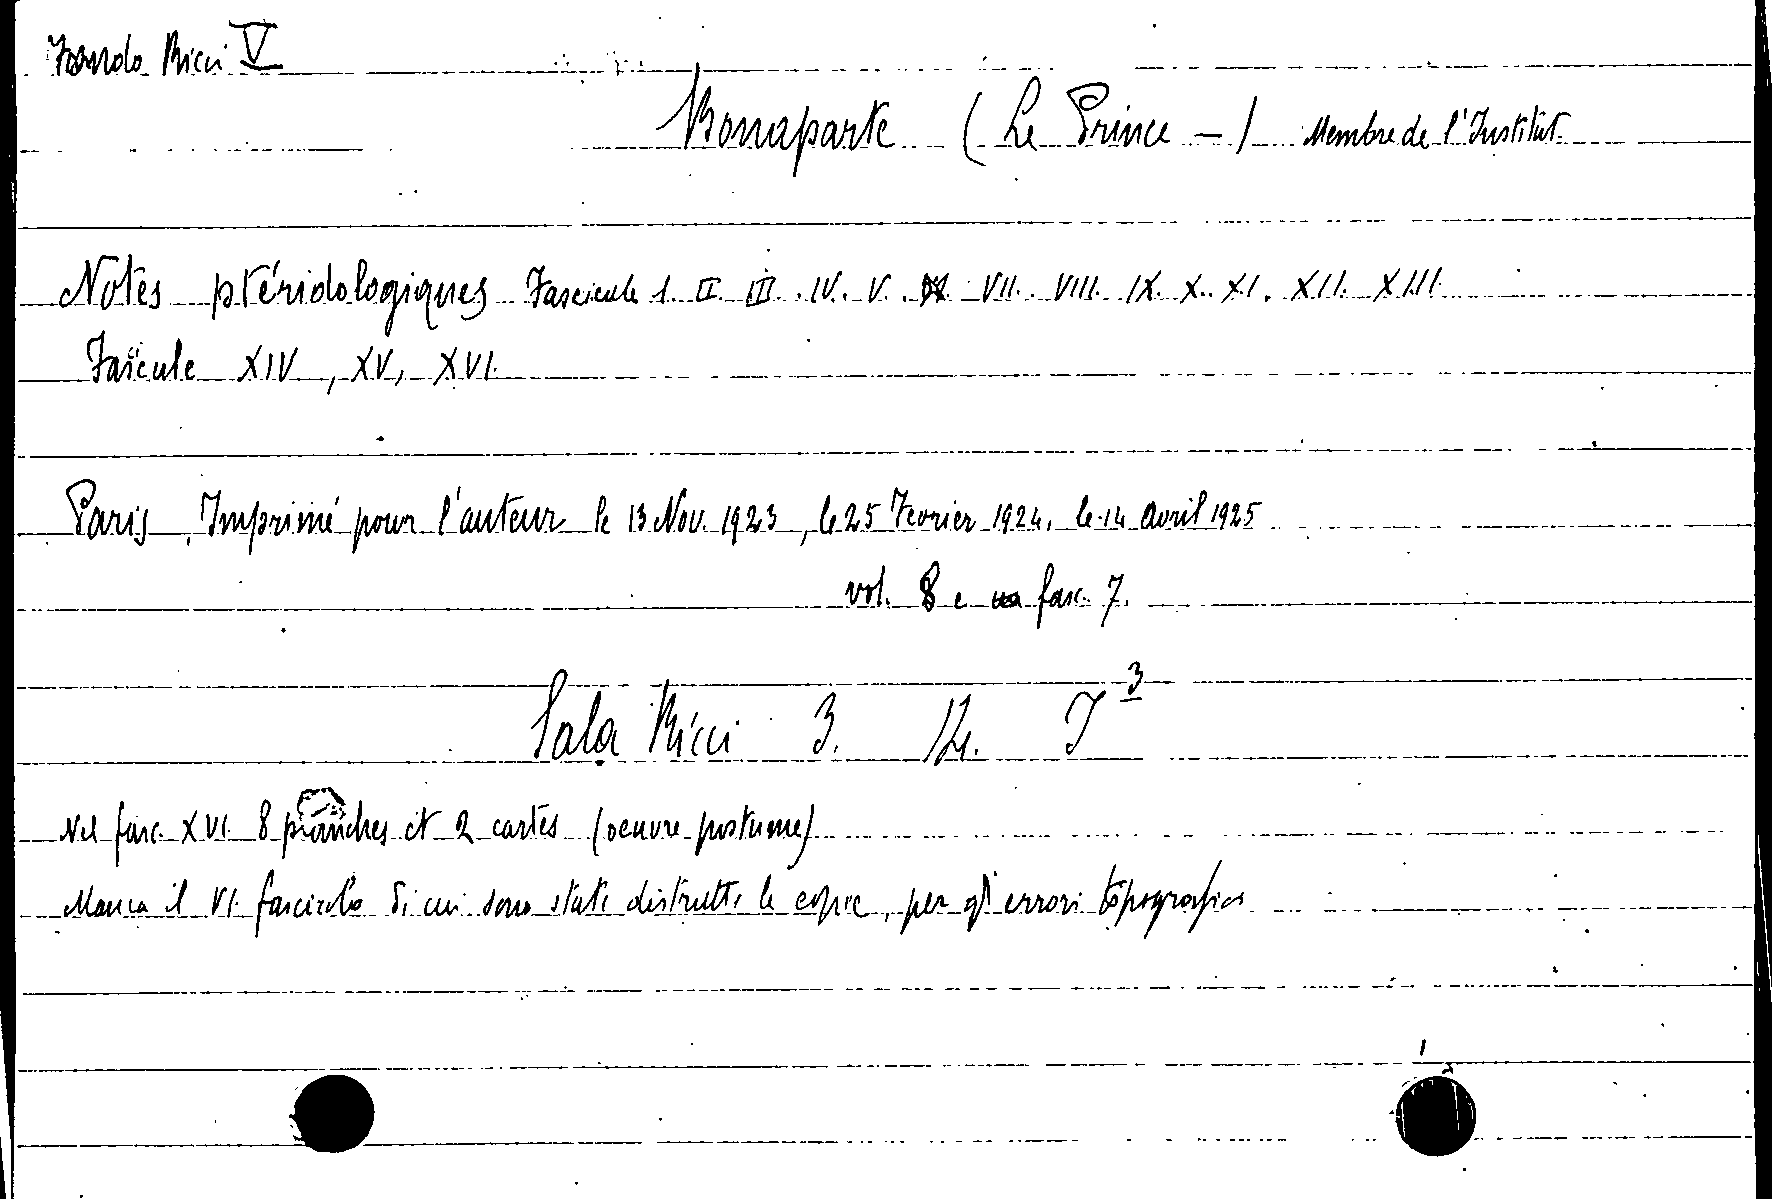 Fondo Ricci V
Bonaparte (Le Prince –) Membre de l'Institut.
Notes ptéridologiques Fascicule 1. II. III. IV. V. VII. VIII. IX. X. XI. XII. XIII.
Fascicule XIV, XV, XVI.
Paris, Imprimé pour l'auteur le 13 Nov. 1923, le 25 Fevrier 1924, le 14 Avril 1925
vol. 8 e fasc. 7.
Sala Ricci 3. 12. I 3
Nel fasc. XVI. 8 planches et 2 cartes (oeuvre postume)
Manca il VI. fascicolo di cui sono state distrutte le copie, per gli errori topografici